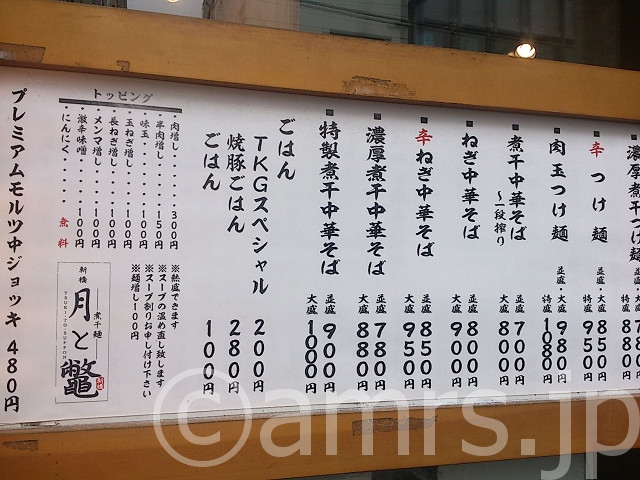 濃厚煮干つけ麺
並盛 780円
大盛 880円
辛つけ麺
並盛・大盛 850円
特盛 950円
肉玉つけ麺
並盛・大盛 980円
特盛 1080円
煮干中華そば
〜一段搾り
並盛 700円
大盛 800円
ねぎ中華そば
並盛 800円
大盛 900円
辛ねぎ中華そば
並盛 850円
大盛 950円
濃厚煮干中華そば
並盛 780円
大盛 880円
特製煮干中華そば
並盛 900円
大盛 1000円
ごはん
TKGスペシャル 200円
焼豚ごはん 280円
ごはん 100円
トッピング
・肉増し・・・・・300円
・半肉増し・・・・150円
・味玉・・・・・・100円
・玉ねぎ増し・・・100円
・長ねぎ増し・・・100円
・メンマ増し・・・100円
・激辛味噌・・・・100円
・にんにく・・・・無料
※熱盛できます
※スープの温め直し致します
※スープ割りお申し付け下さい
※麺増し100円
新橋
煮干麺
月と鼈
TSUKI-TO-SUPPON
プレミアムモルツ中ジョッキ 480円
©amrs.jp